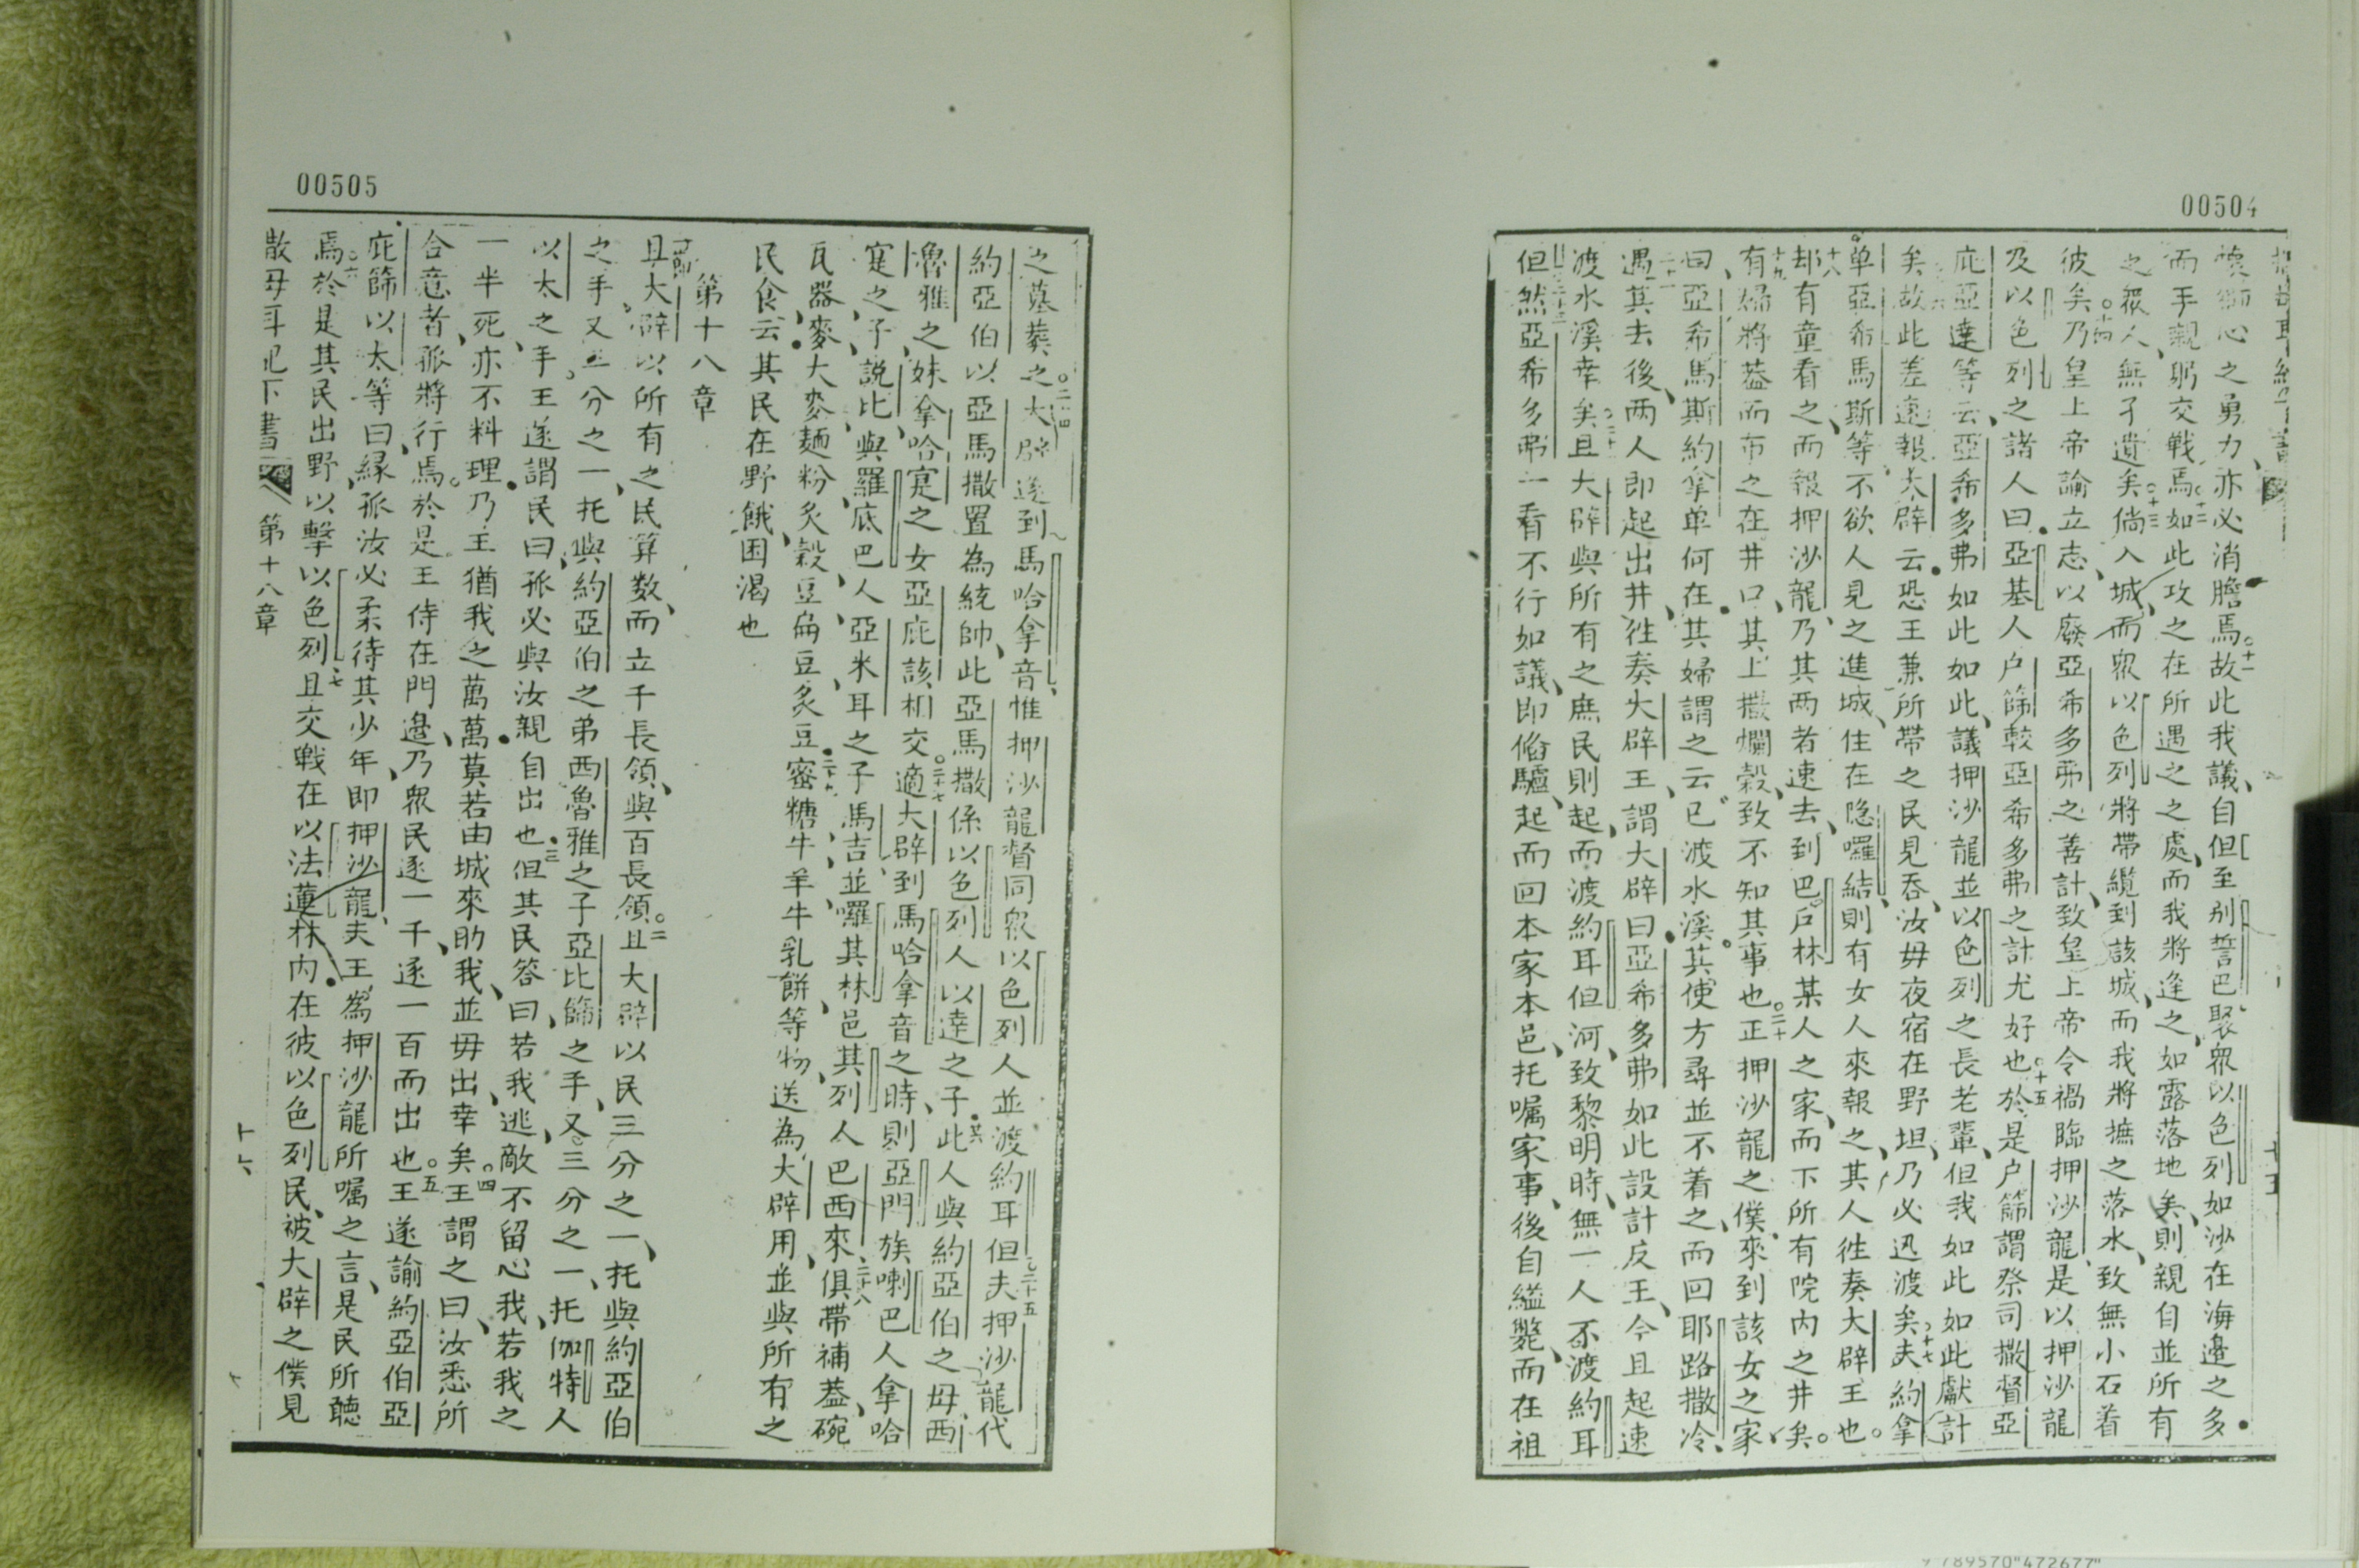 00504
懷獅心之勇力亦必消膽焉○十一故此我議、自但至别誓巴聚眾以色列如沙在海邊之多
而手親、躬交戰焉○十二如此攻之在所遇之之處、而我將逢之、如露落地矣、則親自並所有
之眾人、無孑遺矣○十三倘入城、而眾以色列將帶纜到該城、而我將摭之落水、致無小石着
彼矣○十四乃皇上帝諭立志、以廢亞希多弗之善計、致皇上帝令禍臨押沙龍、是以押沙龍
及以色列之諸人曰、亞基人户篩較亞希多弗之計尤好也○十五於是户篩謂祭司撒督亞
庇亞達等云、亞希多弗如此如此、議押沙龍並以色列之長老輩、但我如此如此獻計
矣○十六故此差速報大辟云、恐王兼所帶之民見吞、汝毋夜宿在野坦、乃必迅渡矣○十七夫約拿
单亞希馬斯等、不欲人見之進城、住在隐囉結、則有女人來報之、其人徃奏大辟王也○
十八却有童看之、而報押沙龍、乃其两者速去、到巴户林某人之家、而下所有院内之井矣○
十九有婦將蓋而布之在井口、其上撒爛穀、致不知其事也○二十正押沙龍之僕、來到該女之家、
曰、亞希馬斯約拿单何在、其婦謂之云、已渡水溪、其使方尋並不着之、而回耶路撒冷、
二十一遇其去後、两人即起出井、徃奏大辟王、謂大辟曰、亞希多弗如此設計反王、今且起速
渡水溪幸矣○二十二且大辟與所有之庶民則起、而渡約耳但河、致黎明時、無一人不渡約耳
但○二十三然亞希多弗一看不行如議、即備驢、起而回本家本邑、托嘱家事、後自縊斃、而在祖
00505
之墓葬之○二十四大辟遂到馬哈拿音、惟押沙龍督同眾以色列人並渡約耳但○二十五夫押沙龍代
約亞伯以亞馬撒置為統帥、此亞馬撒係以色列人以達之子、此人與約亞伯之母、西
魯雅之妹、拿哈寔之女亞庇該相交○二十七適大辟到馬哈拿音之時、則亞門族喇巴人拿哈
寔之子、說比、與羅底巴人亞米耳之子馬吉、並囉其林邑其列人巴西來○二十八俱帶補蓋、碗
瓦器、麥、大麥、麺粉、炙穀、豆扁豆、炙豆○二十九蜜糖、牛羊、牛乳餅等物、送為大辟用、並與所有之
民食、云其民在野餓、困渴也
第十八章
一節且大辟以所有之民算数、而立千長領、與百長領○二且大辟以民三分之一、托與約亞伯
之手、又三分之一托與約亞伯之弟西魯雅之子亞比篩之手、又三分之一、托伽特人
以太之手、王遂謂民曰、孤必與汝親自出也○三但其民答曰、若我逃、敵不留心我、若我之
一半死、亦不料理、乃王猶我之萬萬、莫若由城來助我、並毋出幸矣○四王謂之曰、汝悉所
合意者、孤將行焉、於是王侍在門邊、乃眾民逐一千、逐一百而出也○五王遂諭約亞伯亞
庇篩以太等曰、縁孤汝必柔待其少年、即押沙龍、夫王為押沙龍所嘱之言、是民所聽
焉○六於是其民出野、以擊以色列○七且交戰在以法蓮林内、在彼以色列民、被大辟之僕見
撒母耳記下書 第十八章